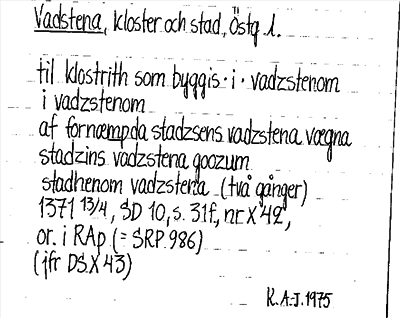 Vadstena, kloster och stad, Östg l.
til klostrith som byggis · i · vadzstenom
i vadzstenom
af fornæmpda stadzsens vadzstena vægna
stadzins vadzstena goozum
stadhenom vadzstena (två gånger)
1371 13/4, SD 10, s. 31f, nr X 42,
or. i RAp (= SRP 986)
(jfr DS. X 43)
K. A-J. 1975